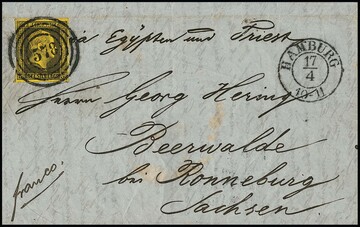 via Egÿpten und Triest
578
HAMBURG
17
4
10-11
Herrn Georg Hering
Beerwalde
bei Ronneburg
Sachsen
franco.